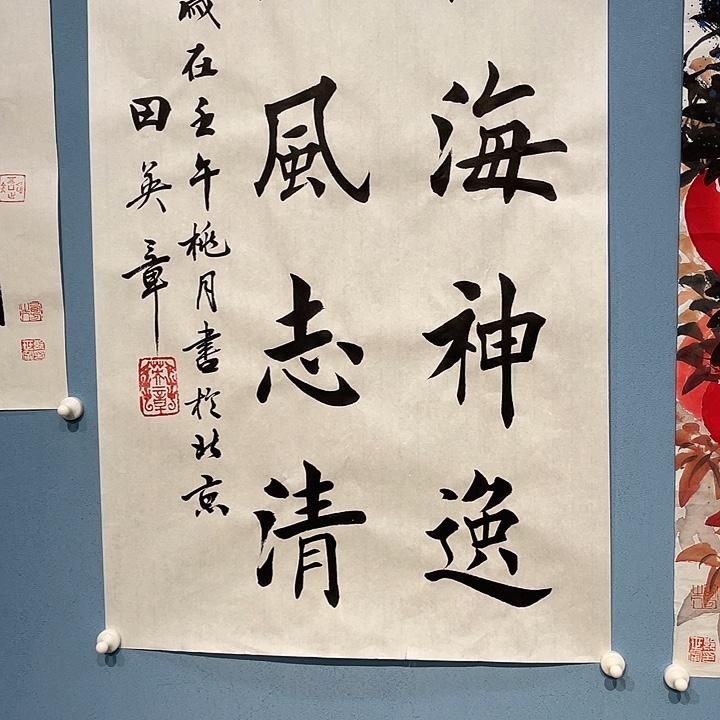 海神逸
風志清
歲在壬午桃月書於北京
田英章